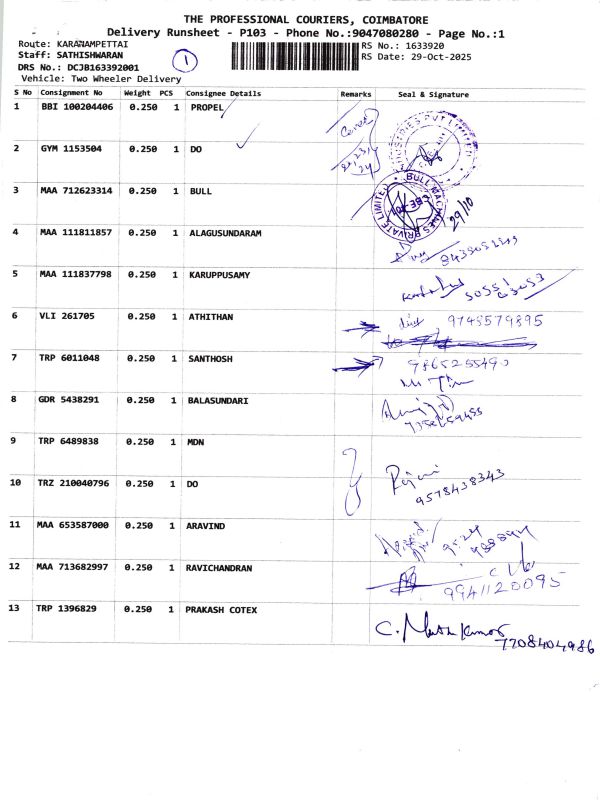 THE PROFESSIONAL COURIERS, COIMBATORE
Delivery Runsheet - P103 - Phone No.:9047080280 - Page No.:1
Route: KARANAMPETTAI
RS No.: 1633920
Staff: SATHISHWARAN
1
RS Date: 29-Oct-2025
DRS No.: DCJB163392001
Vehicle: Two Wheeler Delivery
S No Consignment No Weight PCS Consignee Details Remarks Seal & Signature
1 BBI 100204406 0.250 1 PROPEL
2 GYM 1153504 0.250 1 DO
3 MAA 712623314 0.250 1 BULL
BULL MACHINES PRIVATE LIMITED
29/10
4 MAA 111811857 0.250 1 ALAGUSUNDARAM
5 MAA 111837798 0.250 1 KARUPPUSAMY
6 VLI 261705 0.250 1 ATHITHAN
9748579895
7 TRP 6011048 0.250 1 SANTHOSH
9865255490
8 GDR 5438291 0.250 1 BALASUNDARI
9 TRP 6489838 0.250 1 MDN
10 TRZ 210040796 0.250 1 DO
9578438343
11 MAA 653587000 0.250 1 ARAVIND
12 MAA 713682997 0.250 1 RAVICHANDRAN
9941120095
13 TRP 1396829 0.250 1 PRAKASH COTEX
7708404986